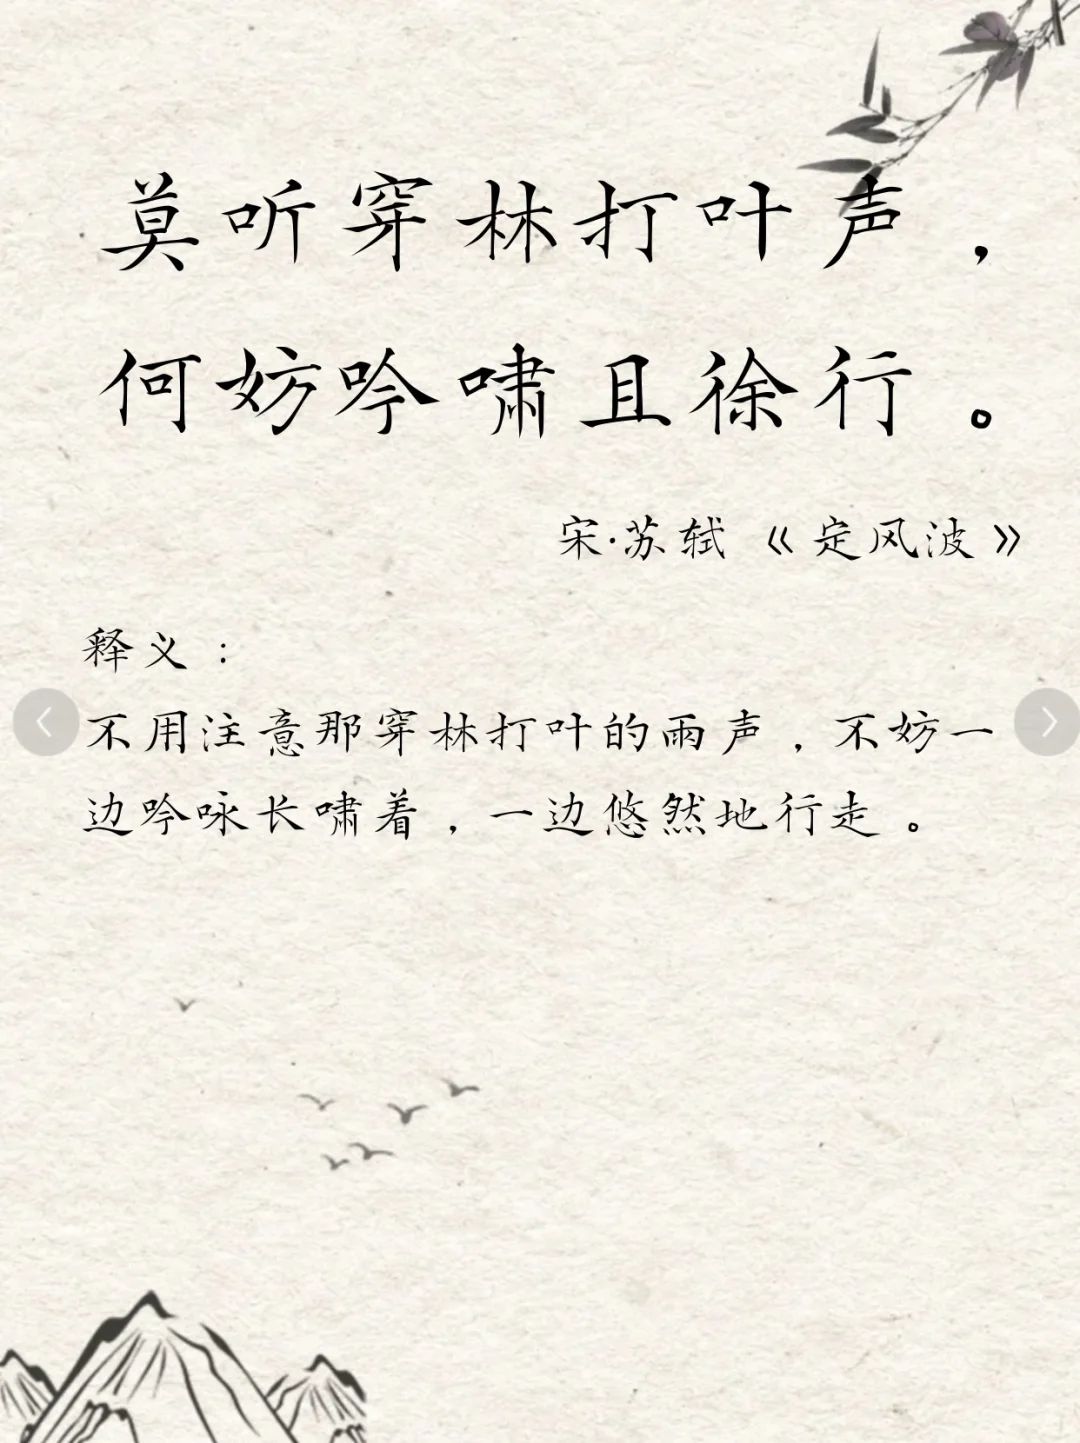 莫听穿林打叶声，
何妨吟啸且徐行。
宋·苏轼《定风波》
释义：
不用注意那穿林打叶的雨声，不妨一
边吟咏长啸着，一边悠然地行走。